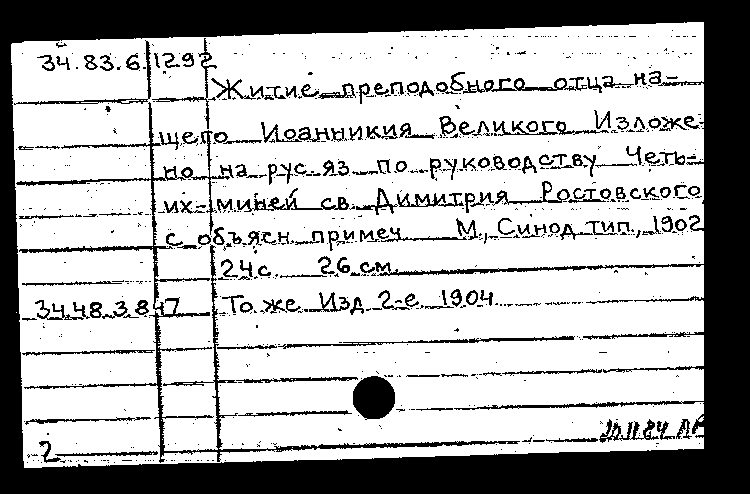 34.83.6.1292
Житие преподобного отца на-
щего Иоанникия Великого Изложе-
но на рус.яз по руководству Четь-
их-миней св. Димитрия Ростовского
с объясн. примеч. М., Синод.тип., 1902
24 с. 26 см.
34.48.3.847 То же Изд 2-е 1904
2